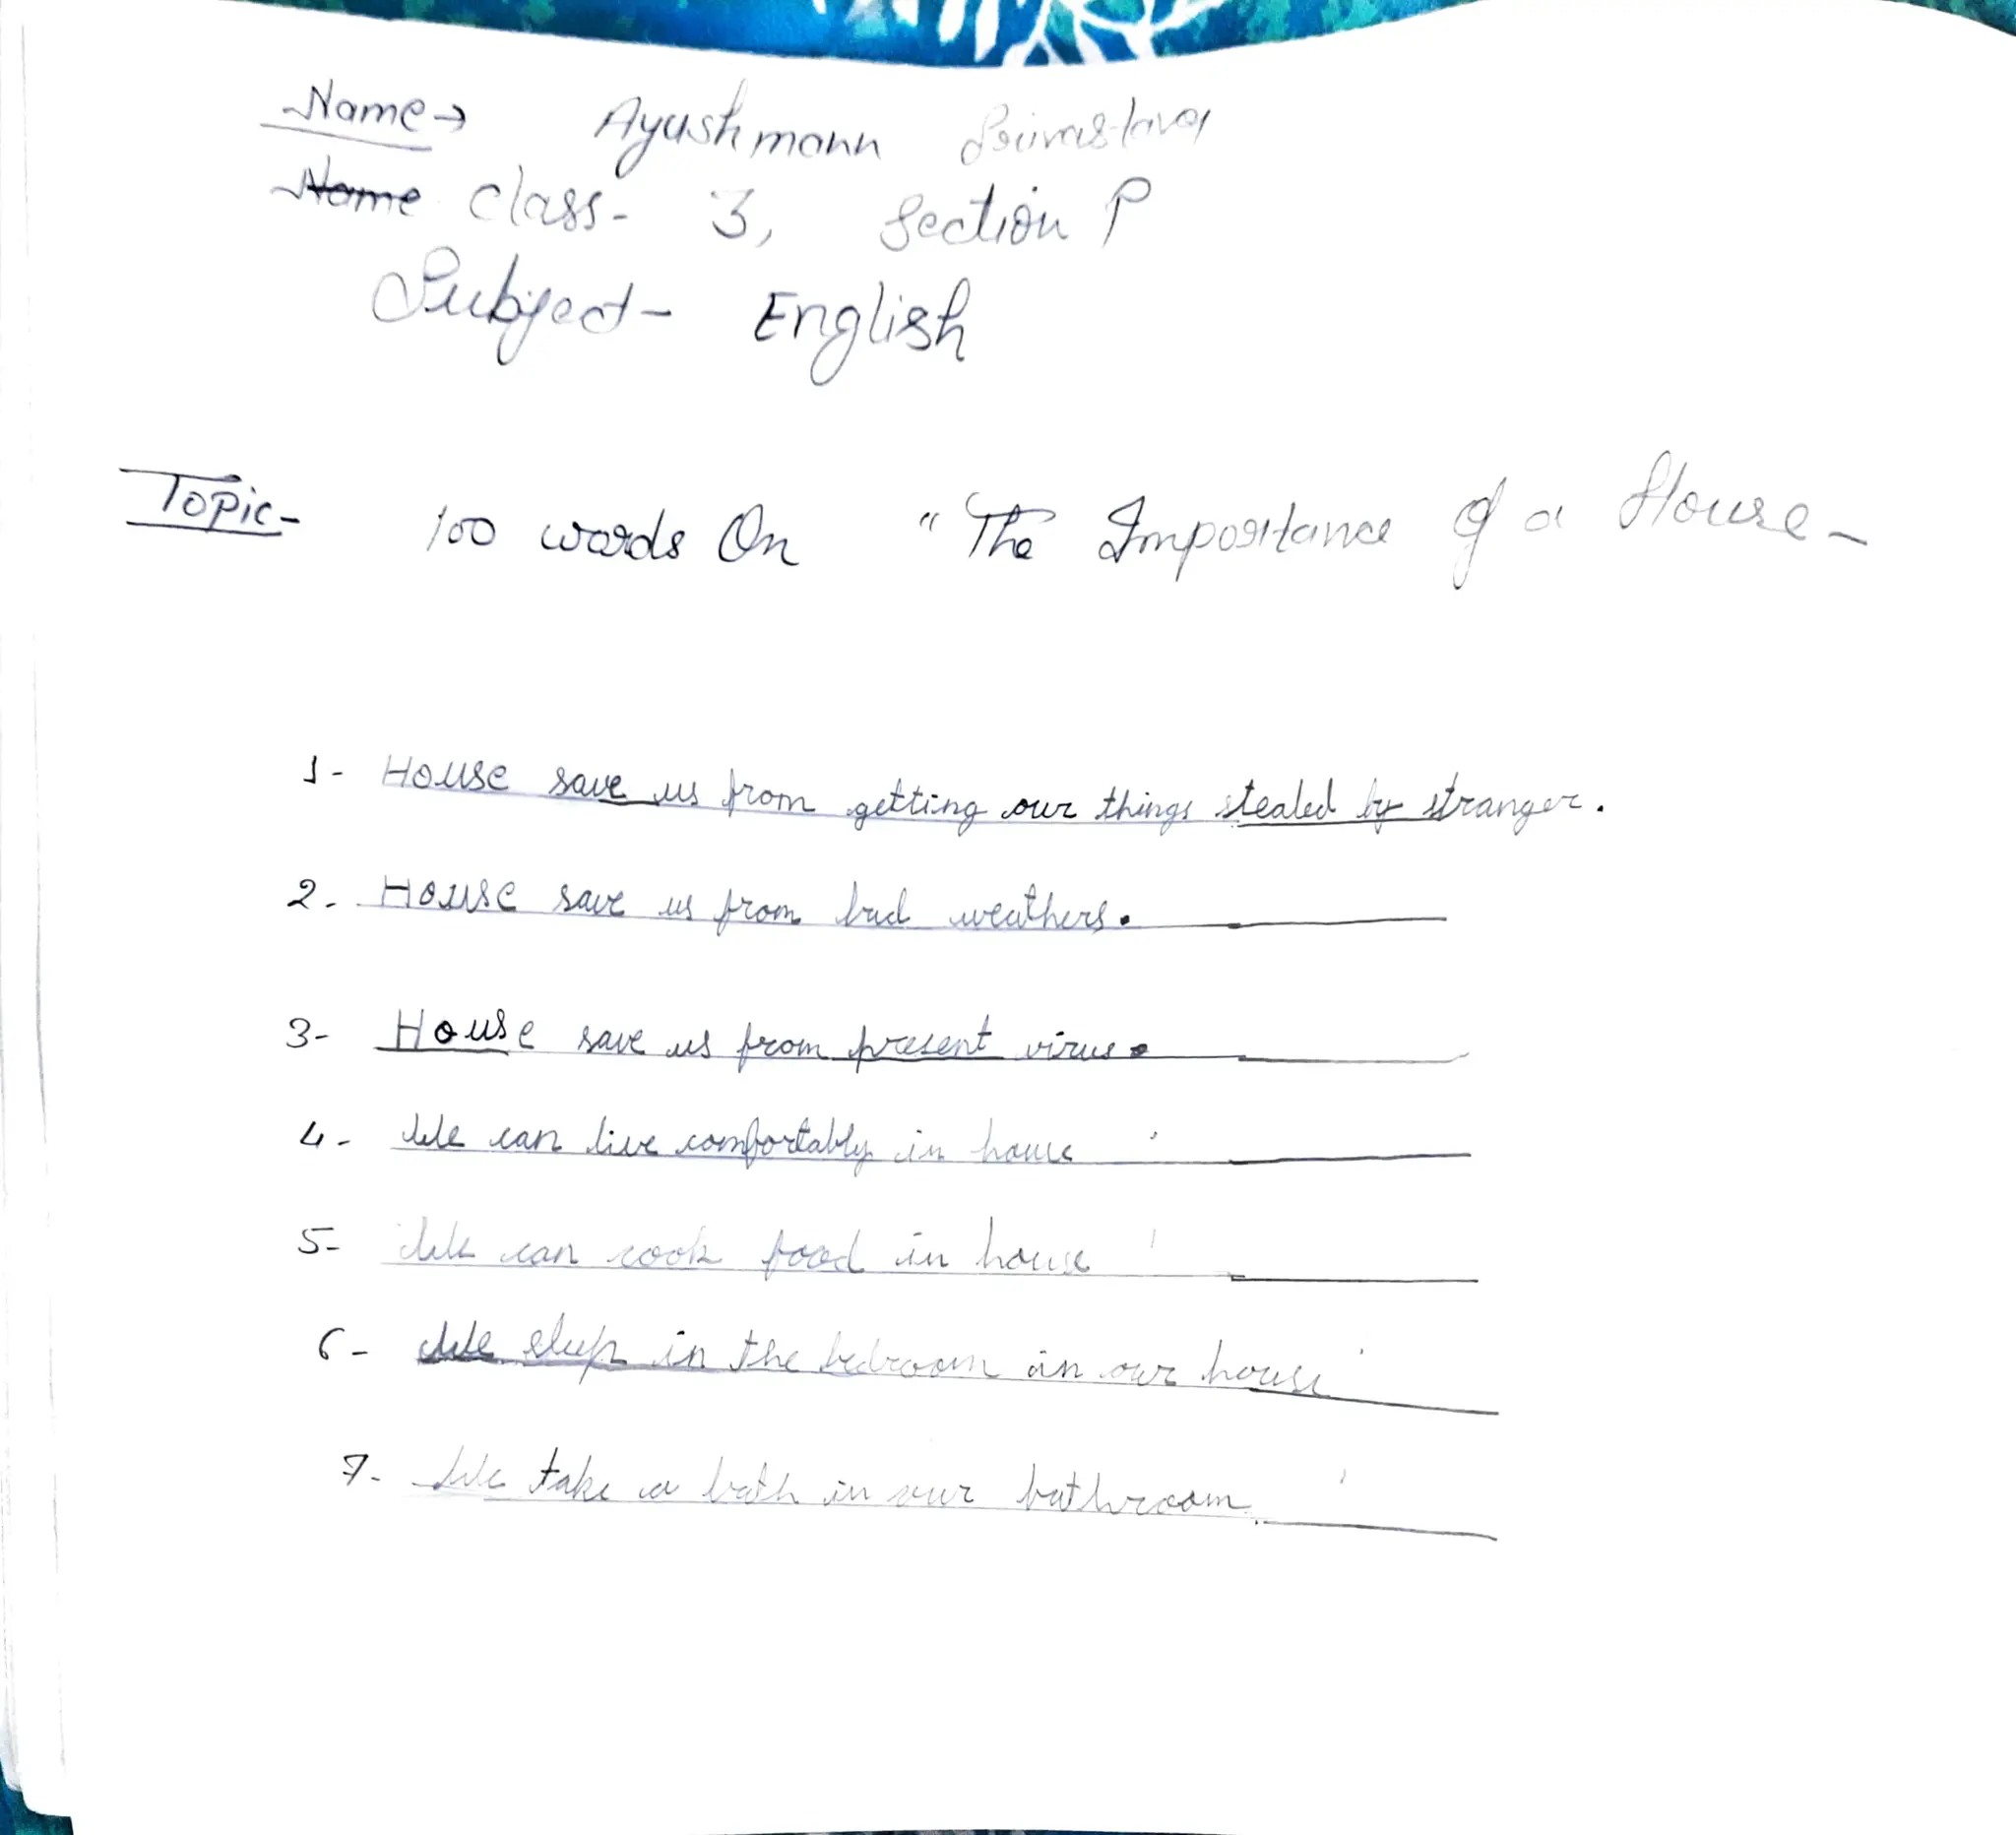 Name → Ayushmann Srivastava
Name Class- 3, Section P
Subject- English
Topic- 100 words On "The Importance of a House-
1- House save us from getting our things stealed by stranger.
2. House save us from bad weathers.
3- House save us from present virus.
4- We can live comfortably in house
5- We can cook food in house
6- We sleep in the bedroom in our house
7- We take a bath in our bathroom.